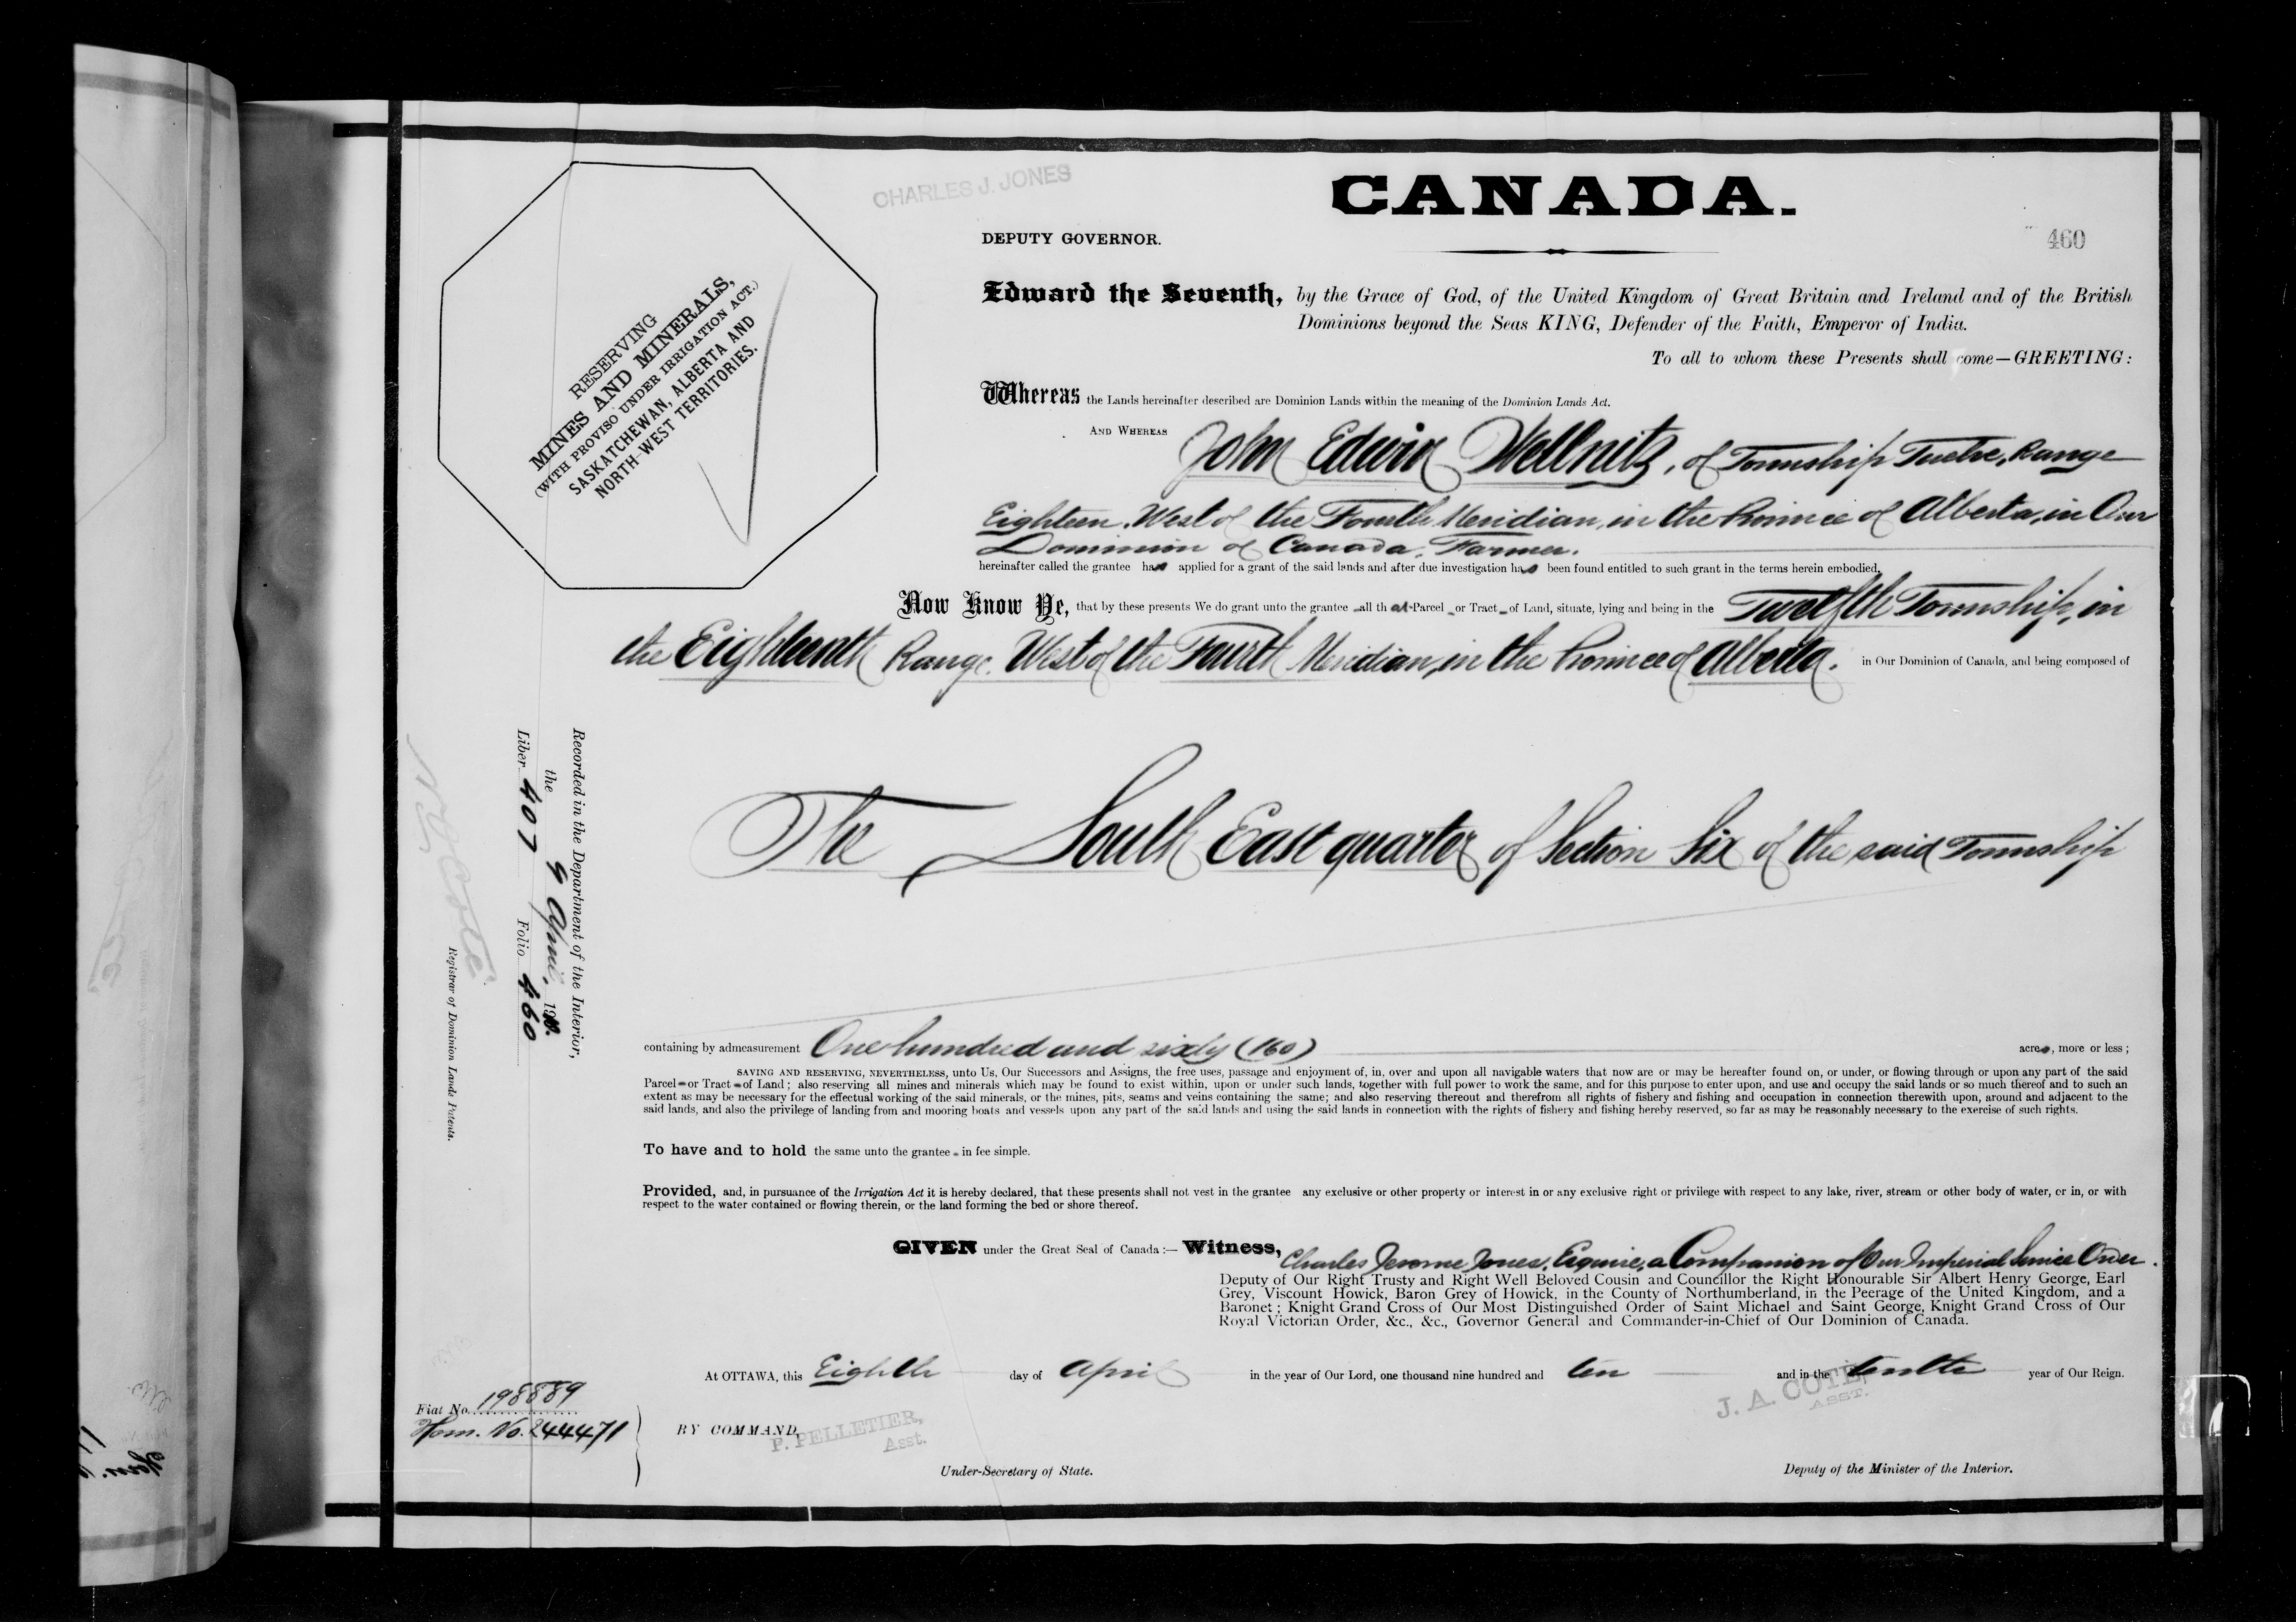 CHARLES J. JONES
CANADA.
DEPUTY GOVERNOR.
460
RESERVING
MINES AND MINERALS,
(WITH PROVISO UNDER IRRIGATION ACT.)
SASKATCHEWAN, ALBERTA AND
NORTH-WEST TERRITORIES.
Edward the Seventh, by the Grace of God, of the United Kingdom of Great Britain and Ireland and of the British
Dominions beyond the Seas KING, Defender of the Faith, Emperor of India.
To all to whom these Presents shall come—GREETING:
Whereas the Lands hereinafter described are Dominion Lands within the meaning of the Dominion Lands Act.
AND WHEREAS John Edwin Wellnitz, of Township Twelve, Range
Eighteen, West of the Fourth Meridian, in the Province of Alberta, in Our
Dominion of Canada, Farmer.
hereinafter called the grantee has applied for a grant of the said lands and after due investigation has been found entitled to such grant in the terms herein embodied,
Now Know Ye, that by these presents We do grant unto the grantee all that Parcel or Tract of Land, situate, lying and being in the Twelfth Township, in
the Eighteenth Range, West of the Fourth Meridian, in the Province of Alberta, in Our Dominion of Canada, and being composed of
The South East quarter of Section Six of the said Township
containing by admeasurement One hundred and sixty (160) acres, more or less;
SAVING AND RESERVING, NEVERTHELESS, unto Us, Our Successors and Assigns, the free uses, passage and enjoyment of, in, over and upon all navigable waters that now are or may be hereafter found on, or under, or flowing through or upon any part of the said
Parcel or Tract of Land; also reserving all mines and minerals which may be found to exist within, upon or under such lands, together with full power to work the same, and for this purpose to enter upon, and use and occupy the said lands or so much thereof and to such an
extent as may be necessary for the effectual working of the said minerals, or the mines, pits, seams and veins containing the same; and also reserving thereout and therefrom all rights of fishery and fishing and occupation in connection therewith upon, around and adjacent to the
said lands, and also the privilege of landing from and mooring boats and vessels upon any part of the said lands and using the said lands in connection with the rights of fishery and fishing hereby reserved, so far as may be reasonably necessary to the exercise of such rights.
To have and to hold the same unto the grantee in fee simple.
Provided, and, in pursuance of the Irrigation Act it is hereby declared, that these presents shall not vest in the grantee any exclusive or other property or interest in or any exclusive right or privilege with respect to any lake, river, stream or other body of water, or in, or with
respect to the water contained or flowing therein, or the land forming the bed or shore thereof.
GIVEN under the Great Seal of Canada:— Witness, Charles Jerome Jones, Esquire, a Companion of Our Imperial Service Order.
Deputy of Our Right Trusty and Right Well Beloved Cousin and Councillor the Right Honourable Sir Albert Henry George, Earl
Grey, Viscount Howick, Baron Grey of Howick, in the County of Northumberland, in the Peerage of the United Kingdom, and a
Baronet; Knight Grand Cross of Our Most Distinguished Order of Saint Michael and Saint George, Knight Grand Cross of Our
Royal Victorian Order, &c., &c., Governor General and Commander-in-Chief of Our Dominion of Canada.
At OTTAWA, this Eighth day of April in the year of Our Lord, one thousand nine hundred and ten and in the tenth year of Our Reign.
Fiat No. 198889
Hom. No. 244471
BY COMMAND,
P. PELLETIER,
Asst.
Under-Secretary of State.
J. A. COTÉ,
ASST.
Deputy of the Minister of the Interior.
Recorded in the Department of the Interior,
the 9 April, 1910.
Liber 407 Folio 460
N O Coté
Registrar of Dominion Lands Patents.